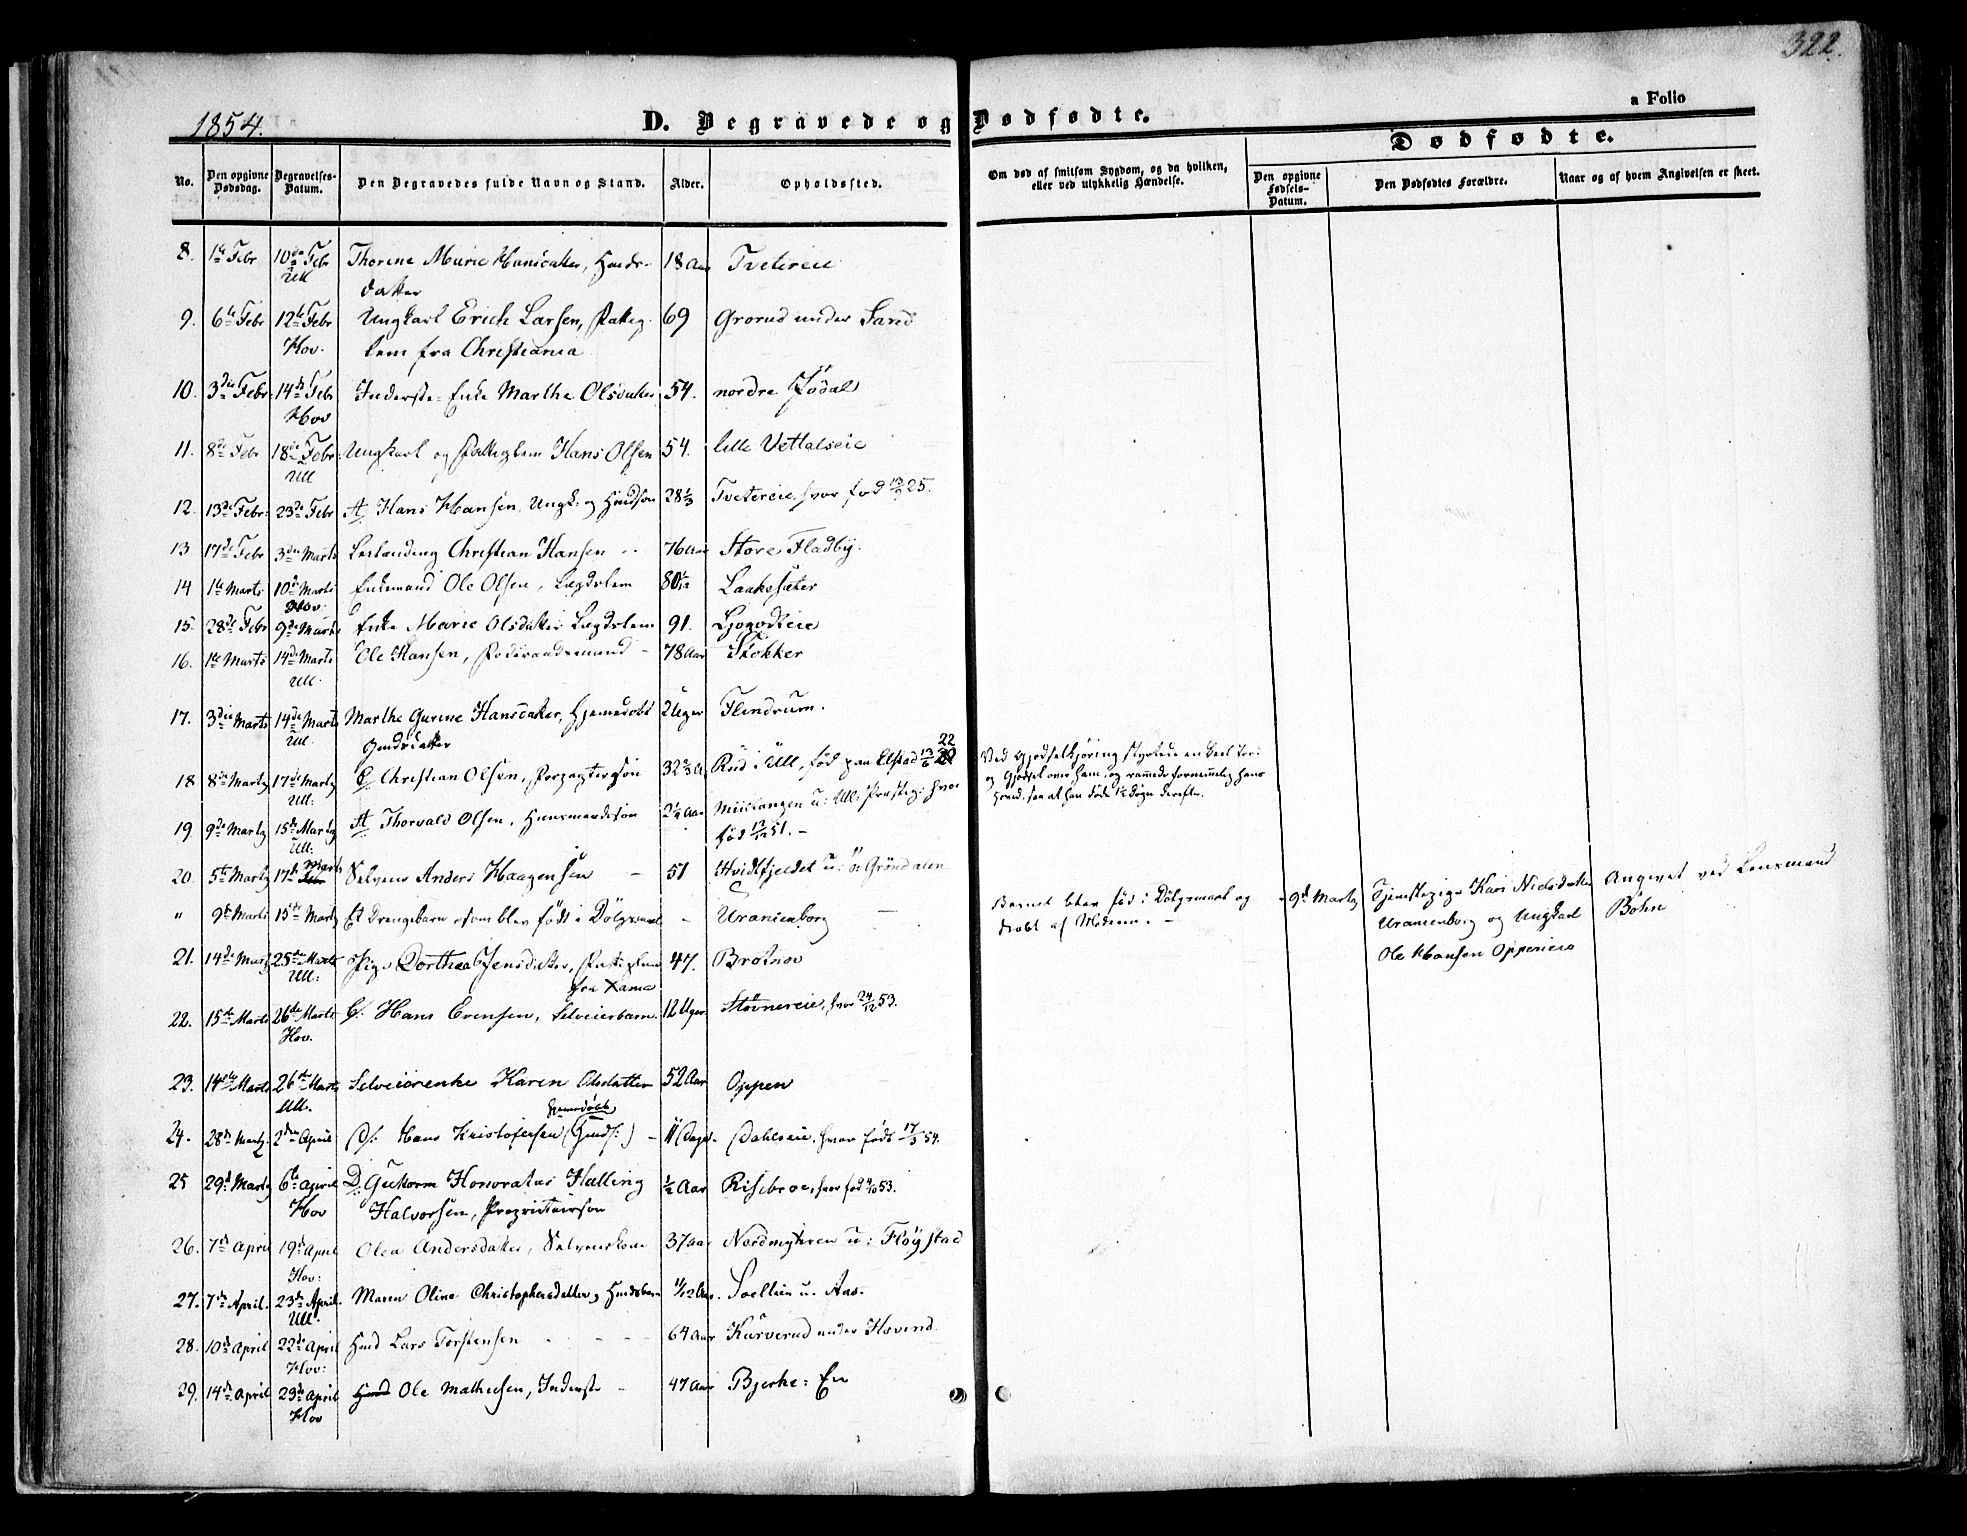 322.
a Folio
1854.
D. Begravede og Dødfødte.
Dødfødte.
No.
Den opgivne Dødsdag.
Begravelses-Datum.
Den Begravedes fulde Navn og Stand.
Alder.
Opholdssted.
Om død af smitsom Sygdom, og da hvilken,
eller ved ulykkelig Hændelse.
Den opgivne Fødsels-Datum.
Den Dødfødtes Forældre.
Naar og af hvem Angivelsen er skeet.
8. 1ste Febr 10de Febr Thorine Marie Hansdatter, Huds- 18 Aar Tvetereie
Ull datter
9. 6te Febr 12te Febr Ungkarl Erich Larsen, 69 Grorud under Sand
Hov. lem fra Christiania
10. 3die Febr 14de Febr Inderste-Enke Marthe Olsdatter 54. nordre Jødal
Hov
11. 8de Febr 18de Febr Ungkarl og Hans Olsen 54. lille Vettalseie
Ull
12. 13de Febr. 23de Febr A Hans Hansen, Ungk. og Hudsøn 28 1/3 Tvetereie, hvor fød 25.
13. 17de Febr 3die Marts Christian Hansen 76 Aar Store Fladby.
14 1ste Marts 10de Marts Enkemand Ole Olsen, Lægdslem 80 1/12 Laakesæter
Hov.
15. 28de Febr 9de Marts Enke Marie Olsdatter Lægdslem 91.
16. 1ste Marts 14de Marts Ole Hansen, 78 Aar Stokker
Ull.
17. 3die Marts 14de Marts Marthe Gurine Hansdatter, Hjemmedøbt 2 Uger Flendrum.
Ull. Hudsdatter
18 8de Marts 17de Marts Christian Olsen, Forpagtersøn 32 2/3 A. Rud i Ull, fød paa Elstad 13/6 22
Ull: Ved Gjødselkjøring styrtede en Deel Jord
og Gjødsel over ham, og rammede fornemmelig hans
Hoved, saa at han døde 1/2 Døgn derefter.
19. 9de Marts 15de Marts A Thorvald Olsen, Huusmandssøn 2 1/4 Aar u: Ull: Præsteg: hvor
Ull: fød 13/12 51.
20. 5te Marts 17de Marts Selveier Anders Haagensen 51 Hvidtfjeldet u: ö: Gröndalen
" 9de Marts 15de Marts Et Drengebarn som blev født i Dölgsmaal - Uranienborg
Barnet blev fød i Dölgsmaal og
dræbt af Moderen.
9de Marts Tjenestepige Kari Nielsdatter
Uranienborg og Ungkarl
Ole Hansen Oppeneie
Angivet ved Lensmand
Böhn
21. 14de Marts 25de Marts Pige Dorthea Jensdatter, 47. Brötnov
Ull: fra Xania
22. 15de Marts 26de Marts Hans Evensen, Selveierbarn. 12 Uger Stövnereie, hvor 24/12 53.
Hov.
23. 14de Marts 26de Marts Selveierenke Karen Olsdatter 52 Aar Oppen
Ull.
24. 28de Marts 2den April D: Hans Kristofersen (Huds:) 11 Dage Dahleie, hvor født 17/3 54.
hjemmedöbt
25 29de Marts 6te April D: Guttorm Honoratus Halling 1/2 Aar Risebroe, hvor fød 53.
Hov Halvorsen, Proprietairsøn
26. 7de April 19de April Olea Andersdatter, Selveierkone 37 Aar Nordmyhren u: Flöystad
Hov:
27. 7de April. 23de April. Maren Oline Christophersdatter, Hudsbarn 11/12 Aar. Soellien u. Aas.
Ull.
28. 10de April 22de April Hmd Lars Torstensen 64 Aar Kurverud under Hovind
Hov:
29. 14de April 23de April Hmd Ole Mathiesen, Inderste 47 Aar Bjerke: En
Hov